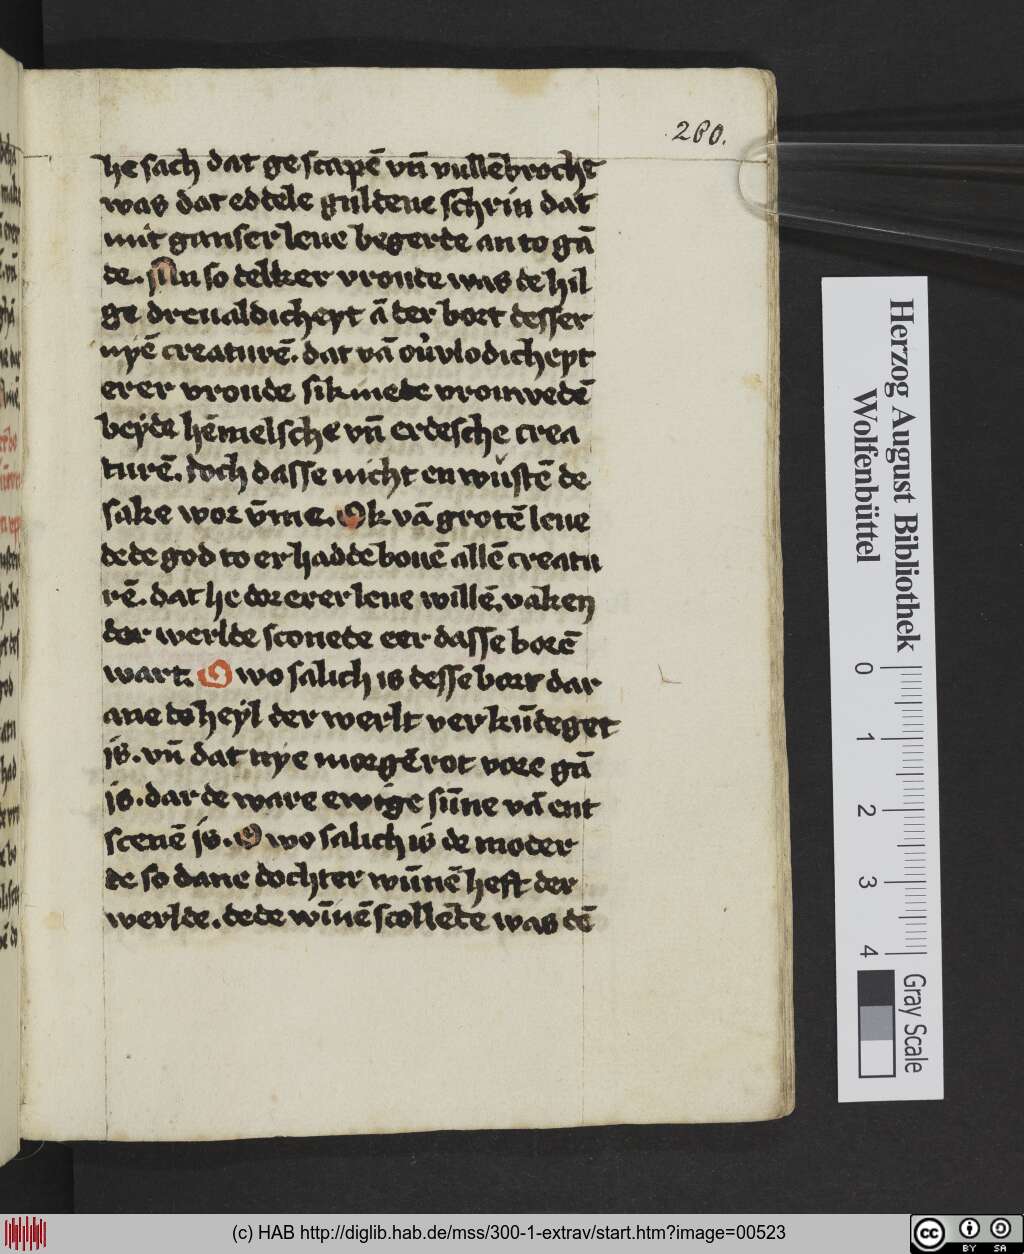 260.
he sach dat gescapē vn̄ vullēbrocht
was dat eddele guldene schrin dat
mit ganser leue begerde an to gā
de. Mn so delker vroude was de hil
ge dreualdicheyt ā der bort desser
nyē creaturē. dat vā ouvlodicheyt
erer vroude sik mede vrouwedē
beyde hēmelsche vn̄ erdesche crea
turē. doch dasse nicht en wustē de
sake wor v̄me. Ok vā grotē leue
dede god to er hadde bouē allē creatu
rē. dat he dor erer leue willē. vaken
der werlde sconede eer dasse borē
wart. O wo salich is desse bort dar
ane de heyl der werlt verkūdeget
is. vn̄ dat nye morgērot vore gā
is. dar de ware ewige sūne vā ent
scenē is. O wo salich is de moder
de so dane dochter wūnē heft der
werlde. dede wīnē scollede was dē
Herzog August Bibliothek
Wolfenbüttel
0 1 2 3 4
Gray Scale
(c) HAB http://diglib.hab.de/mss/300-1-extrav/start.htm?image=00523
cc BY SA